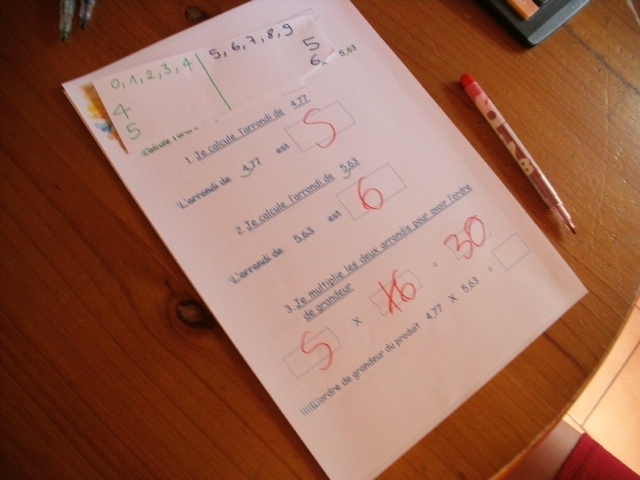 0, 1, 2, 3, 4 | 5, 6, 7, 8, 9
4 5
5 6
x 5,63
1. Je calcule l'arrondi de 4,77
L'arrondi de 4,77 est 5
2 Je calcule l'arrondi de 5,63
L'arrondi de 5,63 est 6
3. Je multiplie les deux arrondis pour avoir l'ordre
de grandeur
5 x 6 = 30
L'ordre de grandeur du produit 4,77 X 5,63 =